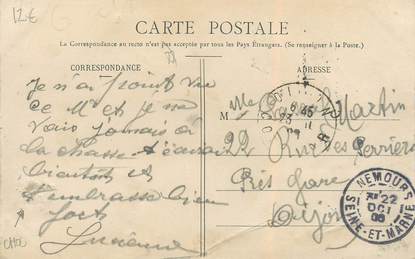 12€
CARTE POSTALE
La Correspondance au recto n'est pas acceptée par tous les Pays Étrangers. (Se renseigner à la Poste.)
CORRESPONDANCE
Je n'ai point vu
ce Mr et je ne
vais jamais à
la chasse
bientôt et
t'embrasse bien
fort
Lucienne
ADRESSE
M
Martin
22 Rue des Perrières
Près Gare
Dijon
NEMOURS
22
OCT
SEINE-ET-MARNE